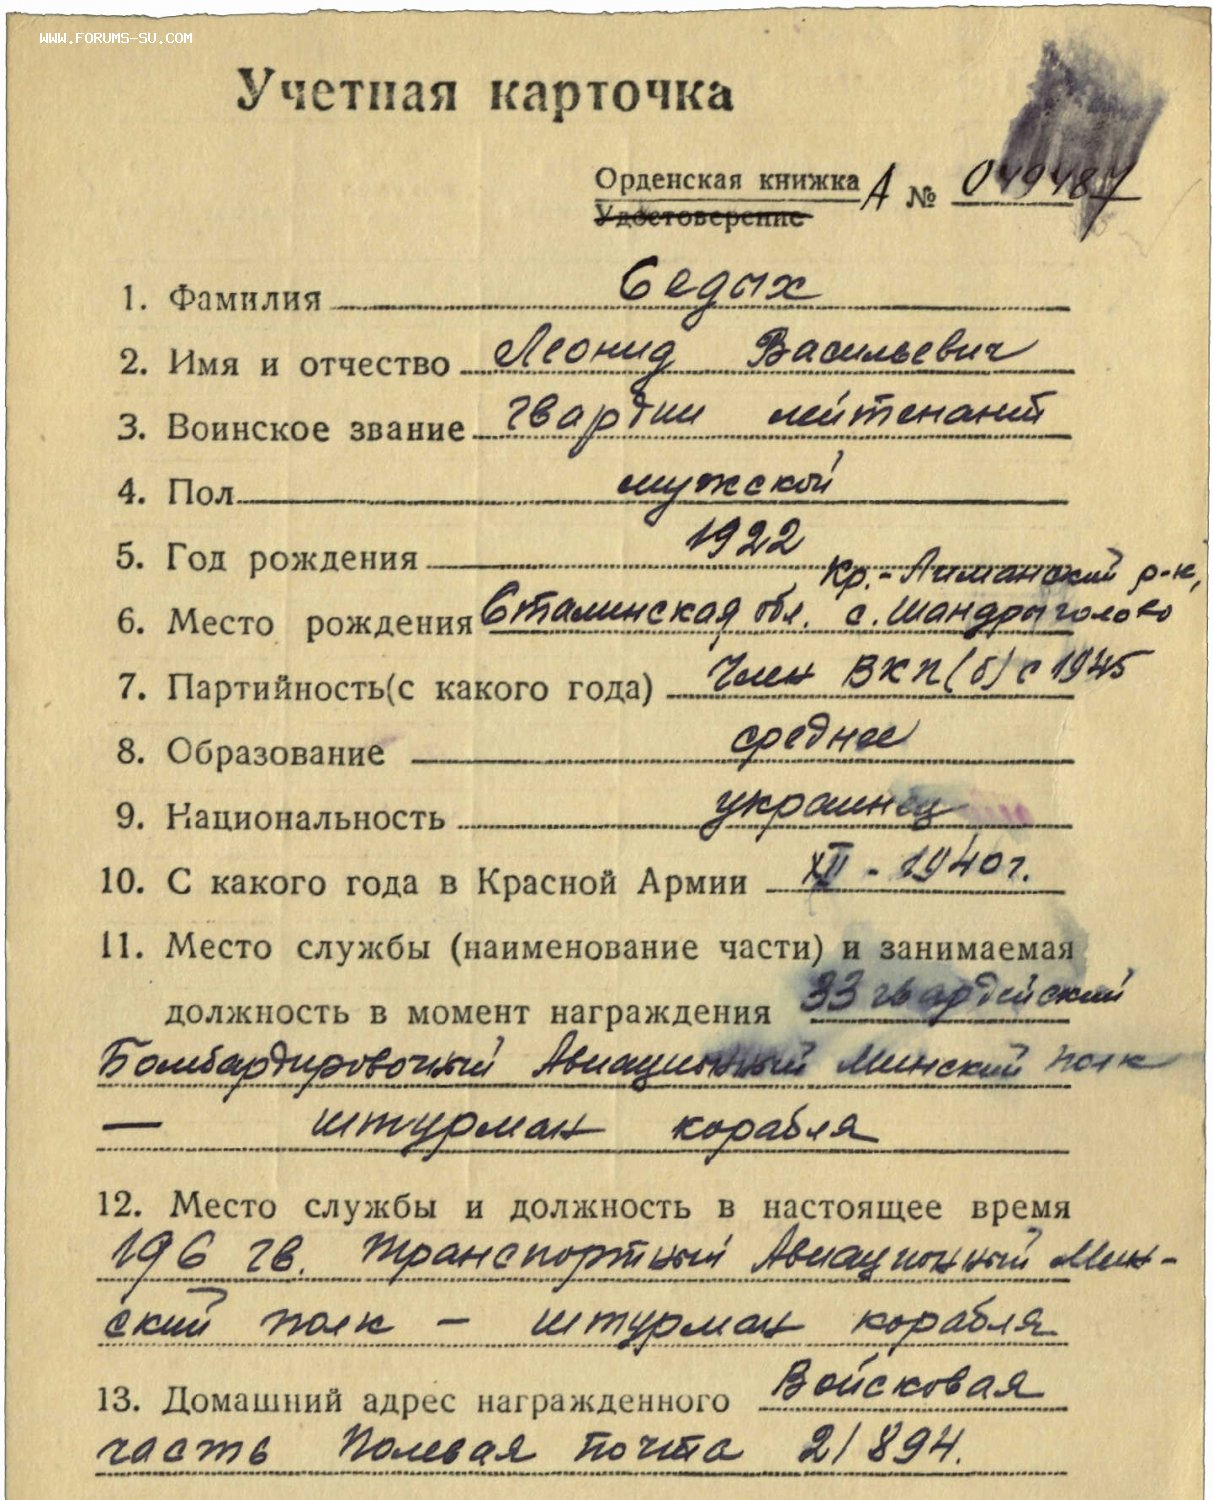 WWW.FORUMS-SU.COM
Учетная карточка
Орденская книжка А № 049487
Удостоверение
1. Фамилия Седых
2. Имя и отчество Леонид Васильевич
3. Воинское звание гвардии лейтенант
4. Пол мужской
5. Год рождения 1922
Кр.-Лиманский р-н,
6. Место рождения Сталинская обл. с. Шандрыголово
7. Партийность (с какого года) Член ВКП(б) с 1945
8. Образование среднее
9. Национальность украинец
10. С какого года в Красной Армии XII - 1940 г.
11. Место службы (наименование части) и занимаемая
должность в момент награждения 33 гвардейский
Бомбардировочный Авиационный Минский полк
— штурман корабля
12. Место службы и должность в настоящее время
196 гв. Транспортный Авиационный Мин-
ский полк – штурман корабля
13. Домашний адрес награжденного Войсковая
часть Полевая почта 21894.